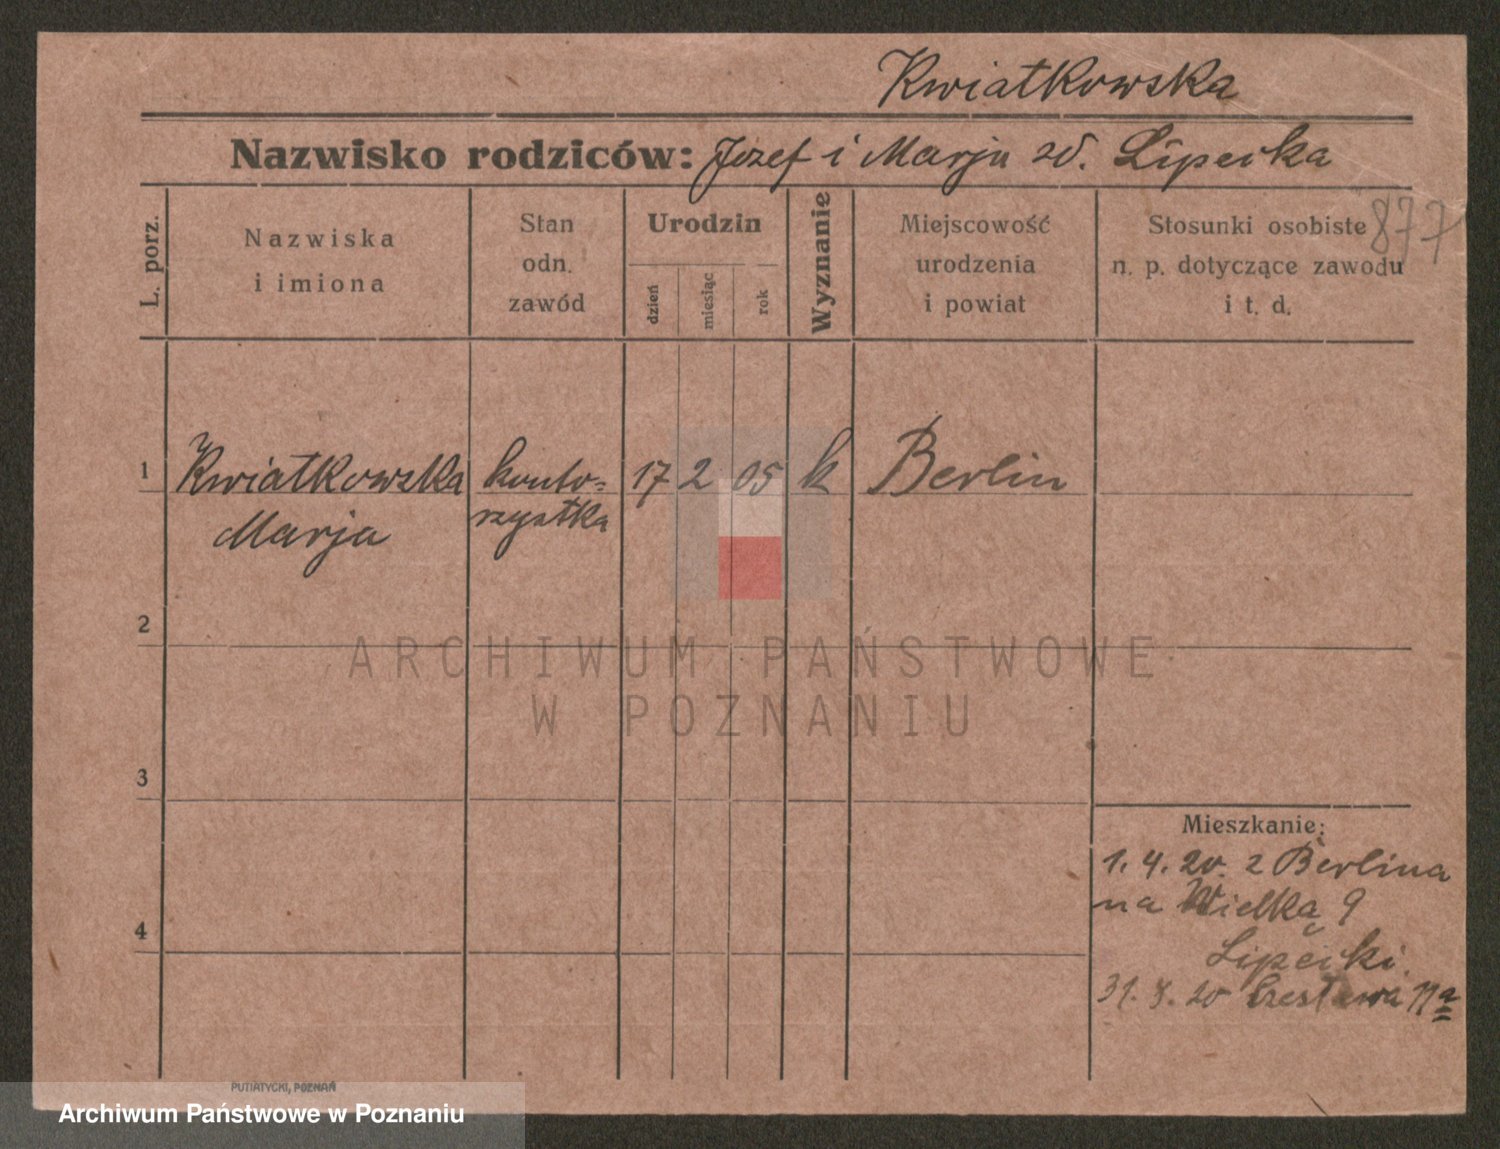 Kwiatkowska
Nazwisko rodziców: Józef i Marja zd. Lipecka
877
L. porz.
Nazwiska
i imiona
Stan
odn.
zawód
Urodzin
dzień
miesiąc
rok
Wyznanie
Miejscowość
urodzenia
i powiat
Stosunki osobiste
n. p. dotyczące zawodu
i t. d.
1 Kwiatkowska konto= 17 2 05 k Berlin
Marja rzystka
2
ARCHIWUM PAŃSTWOWE
W POZNANIU
3
Mieszkanie:
1. 4. 20. z Berlina
na Wielką 9
4
31. 8. 20
PUTIATYCKI, POZNAŃ
Archiwum Państwowe w Poznaniu